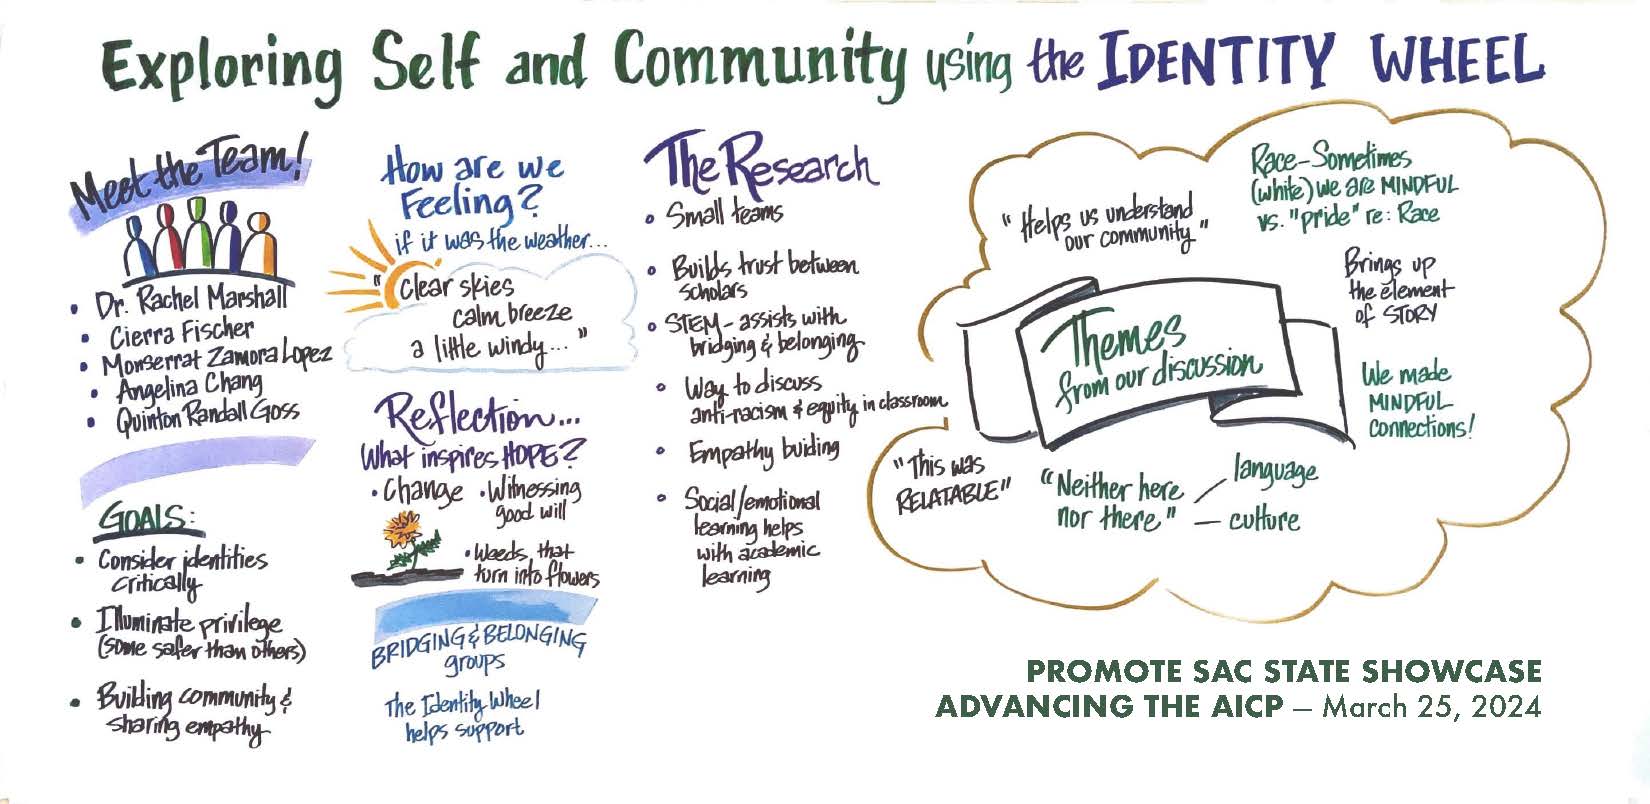 Exploring Self and Community using the IDENTITY WHEEL
Meet the Team!
• Dr. Rachel Marshall
• Cierra Fischer
• Monserrat Zamora Lopez
• Angelina Chang
• Quinton Randall Goss
GOALS:
• Consider identities
critically
• Illuminate privilege
(some safer than others)
• Building community &
sharing empathy
How are we
Feeling?
if it was the weather...
"Clear skies
calm breeze
a little windy..."
Reflection...
What inspires HOPE?
• Change
• Witnessing
good will
• Weeds, that
turn into flowers
BRIDGING & BELONGING
groups
The Identity Wheel
helps support
The Research
• Small teams
• Builds trust between
scholars
• STEM - assists with
bridging & belonging
• Way to discuss
anti-racism & equity in classroom
• Empathy buiding
• Social/emotional
learning helps
with academic
learning
"Helps us understand
our community"
Race-Sometimes
(white) we are MINDFUL
vs. "pride" re: Race
Brings up
the element
of STORY
Themes
from our discussion
We made
MINDFUL
connections!
"This was
RELATABLE"
"Neither here
nor there"
language
— culture
PROMOTE SAC STATE SHOWCASE
ADVANCING THE AICP — March 25, 2024